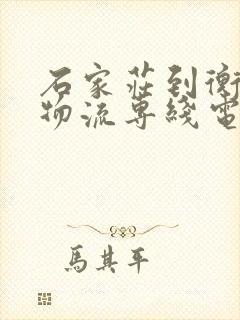 石家莊到衡
物流専綫電
馬其平